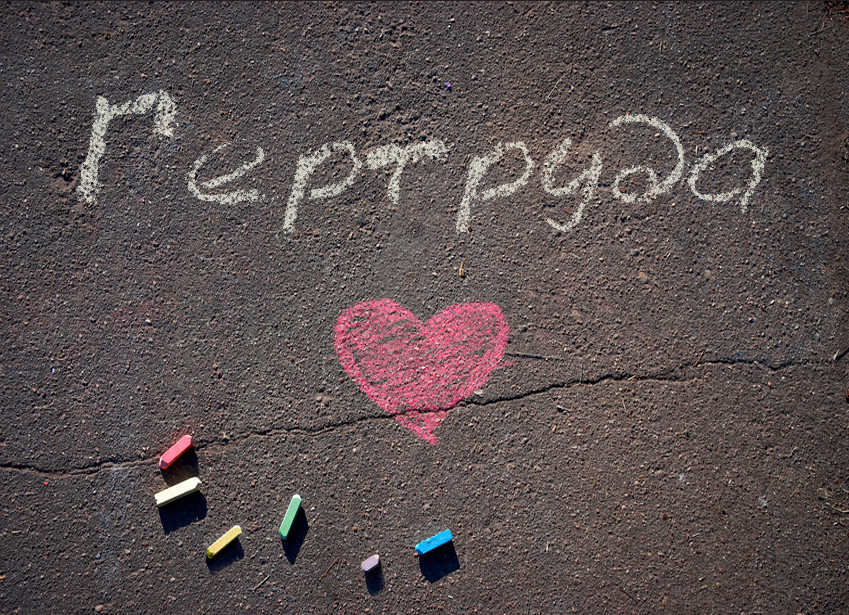 Гертруда